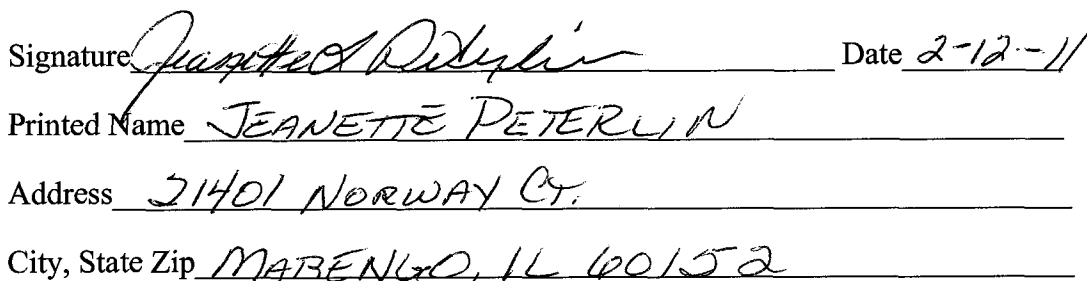 Signature Jeanette L Peterlin Date 2-12-11
Printed Name JEANETTE PETERLIN
Address 21401 NORWAY CT.
City, State Zip MARENGO, IL 60152